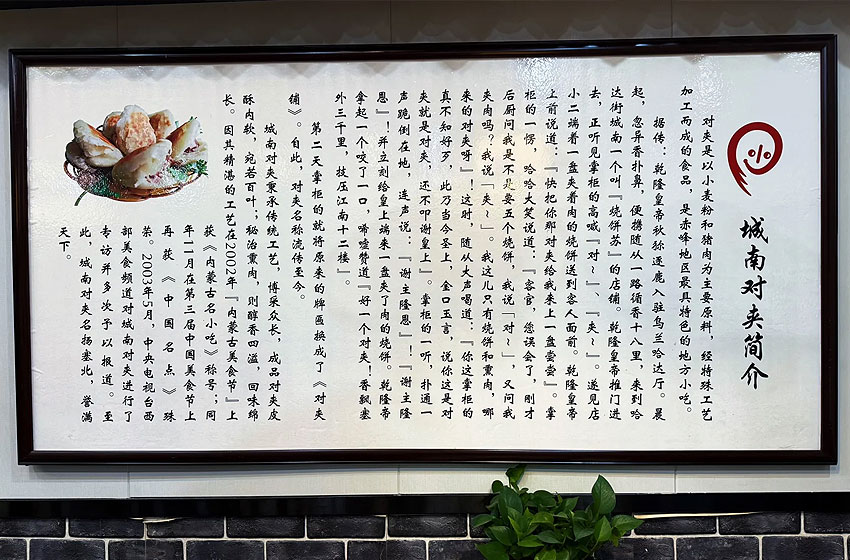 城南对夹简介
对夹是以小麦粉和猪肉为主要原料，经特殊工艺
加工而成的食品，是赤峰地区最具特色的地方小吃。
据传：乾隆皇帝秋狝逐鹿入驻乌兰哈达厅。晨
起，忽异香扑鼻，便携随从一路循香十八里，来到哈
达街城南一个叫『烧饼苏』的店铺。乾隆皇帝推门进
去，正听见掌柜的高喊『对～』、『夹～』。遂见店
小二端着一盘夹着肉的烧饼送到客人面前。乾隆皇帝
上前说道：『快把你那对夹给我来上一盘尝尝』。掌
柜的一愣，哈哈大笑说道：『客官，您误会了，刚才
后厨问我是不是要五个烧饼，我说「对～」，又问我
夹肉吗？我说「夹～」。我这儿只有烧饼和熏肉，哪
来的对夹呀』！这时，随从大声喝道：『你这掌柜的
真不知好歹，此乃当今圣上，金口玉言，说你这是对
夹就是对夹，还不叩谢皇上』。掌柜的一听，扑通一
声跪倒在地，连声说：『谢主隆恩』！『谢主隆
恩』！并立刻给皇上端来一盘夹了肉的烧饼。乾隆帝
拿起一个咬了一口，唏嘘赞道『好一个对夹！香飘塞
外三千里，技压江南十二楼』。
第二天掌柜的就将原来的牌匾换成了《对夹
铺》。自此，对夹名称流传至今。
城南对夹秉承传统工艺，博采众长，成品对夹皮
酥肉软，宛若百叶；秘治熏肉，则醇香四溢，回味绵
长。因其精湛的工艺在2002年『内蒙古美食节』上
获《内蒙古名小吃》称号；同
年11月在第三届中国美食节上
再获《中国名点》殊
荣。2003年5月，中央电视台西
部美食频道对城南对夹进行了
专访并多次予以报道。至
此，城南对夹名扬塞北，誉满
天下。